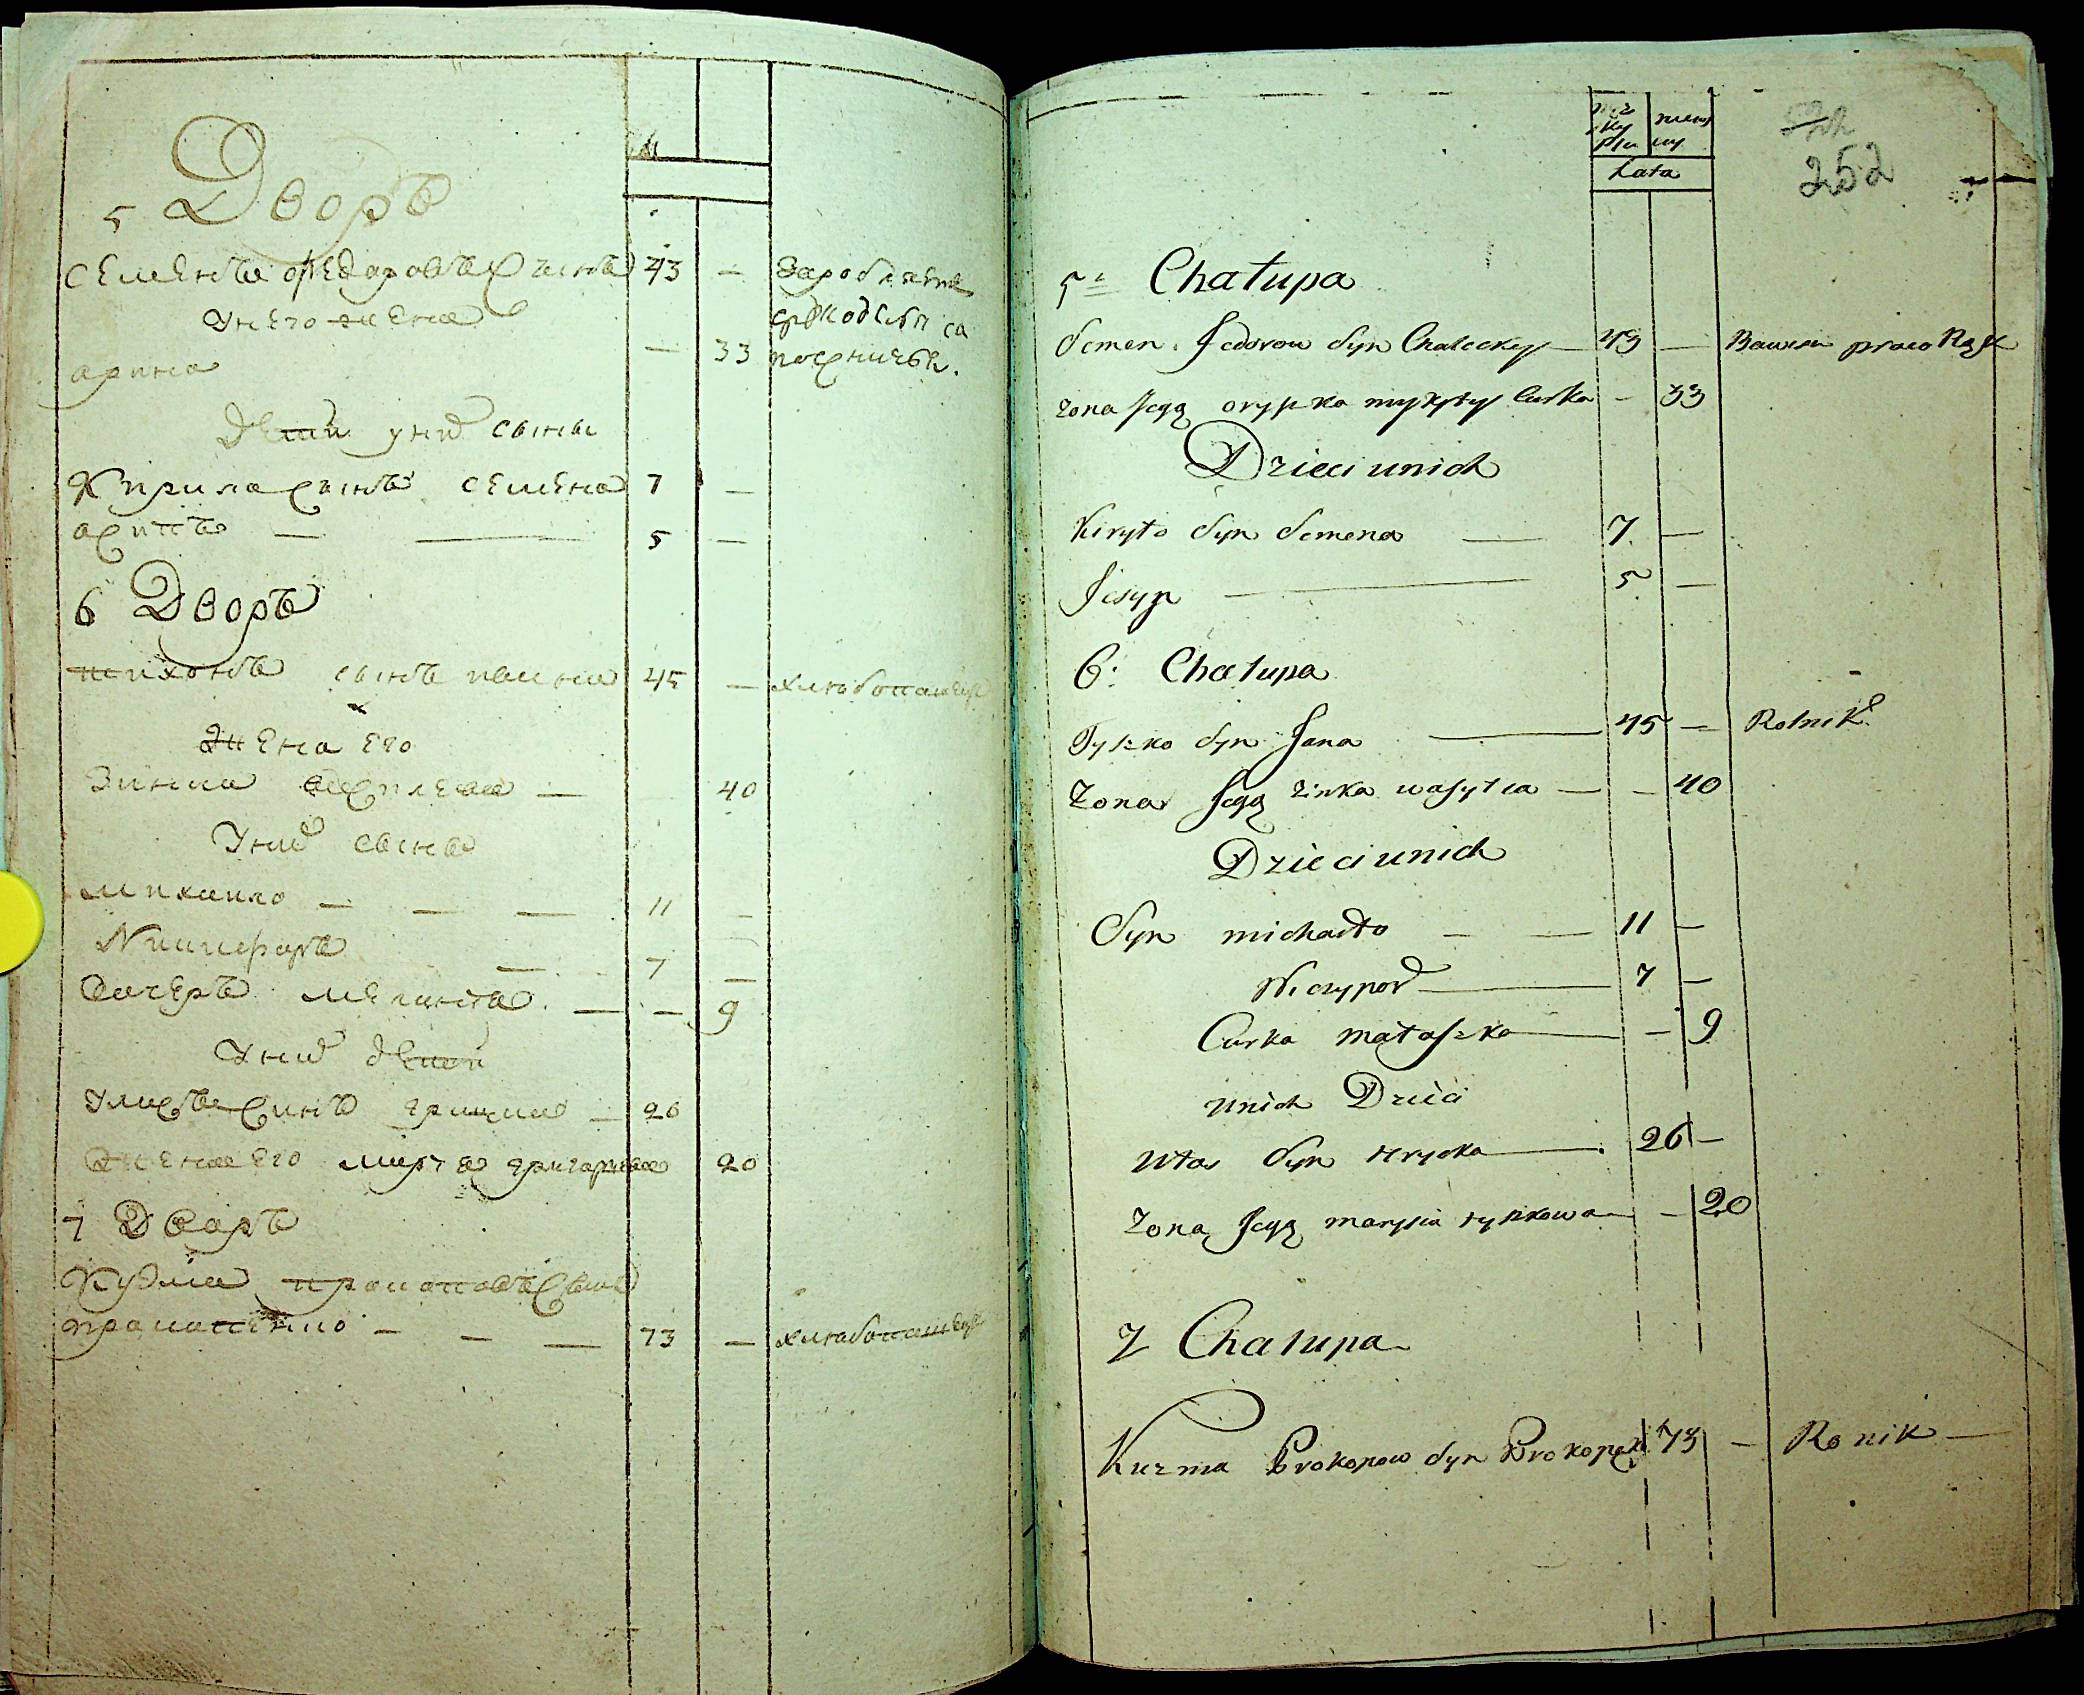 5 Дворъ
Семенъ Федоровъ сынъ 43 —
У него жена
арина — 33
Дети у них сыны
Кирила сынъ семена 7 —
асипъ — — 5 —
6 Дворъ
тихонъ сынъ ивана 45 — хлебопашец
Жена его
Зинка василева — 40
У них сынъ
михаило — — — 11 —
Ничипоръ — 7 —
Дочеръ — — 9
У них детей
Уласъ сынъ грицка — 26
Жена его марья григорева 20
7 Дворъ
Кузма прокоповъ сынъ
прокопенко — — — 73 — хлебопашец
252
Lata
5 Chałupa
Semen Fedorow Syn Chalecky — 43 — Bawisie praco Rąk
Zona Jego oryszka mykyty Curka — 33
Dzieci unich
Kiryło Syn Semena — 7 —
Josyp — 5 —
6. Chałupa
Tyszko Syn Jana — 45 — Rolnik
Zona Jego Zinka wasylca — — 40
Dzieci unich
Syn michałto — — 11 —
Niczypor — 7 —
Curka małaszka — — 9
unich Dzieci
Włas Syn Hrycka — 26 —
Zona Jego marysia — 20
7 Chałupa
Kuzma Prokopow Syn 73 — Ronik —